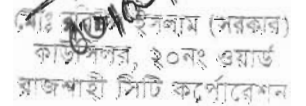 মোঃ ইসলাম (সরকার)
কাউন্সিলর, ২০নং ওয়ার্ড
রাজশাহী সিটি কর্পোরেশন